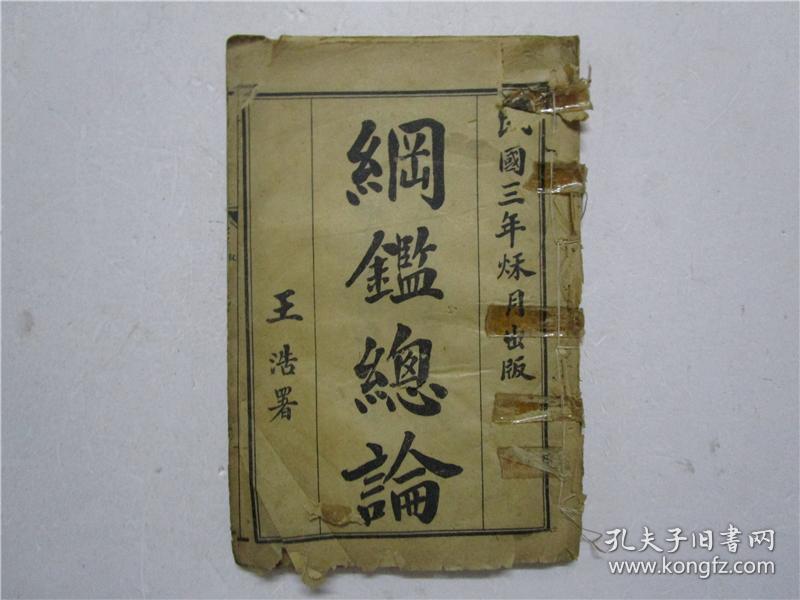 民國三年烁月出版
綱鑑總論
王浩署
孔夫子旧书网
www.kongfz.com